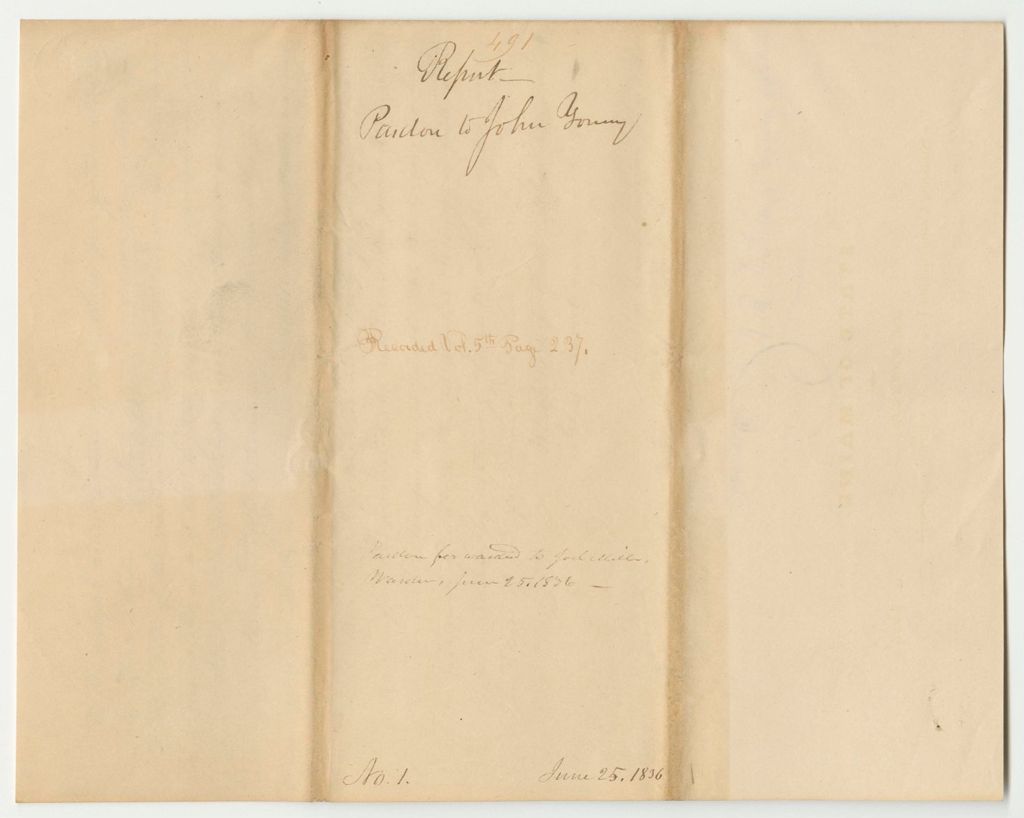 491
Report
Pardon to John Young
Recorded Vol. 5th Page 237.
Pardon forwarded to Joel Miller,
Warden, June 25. 1836
No. 1.
June 25. 1836